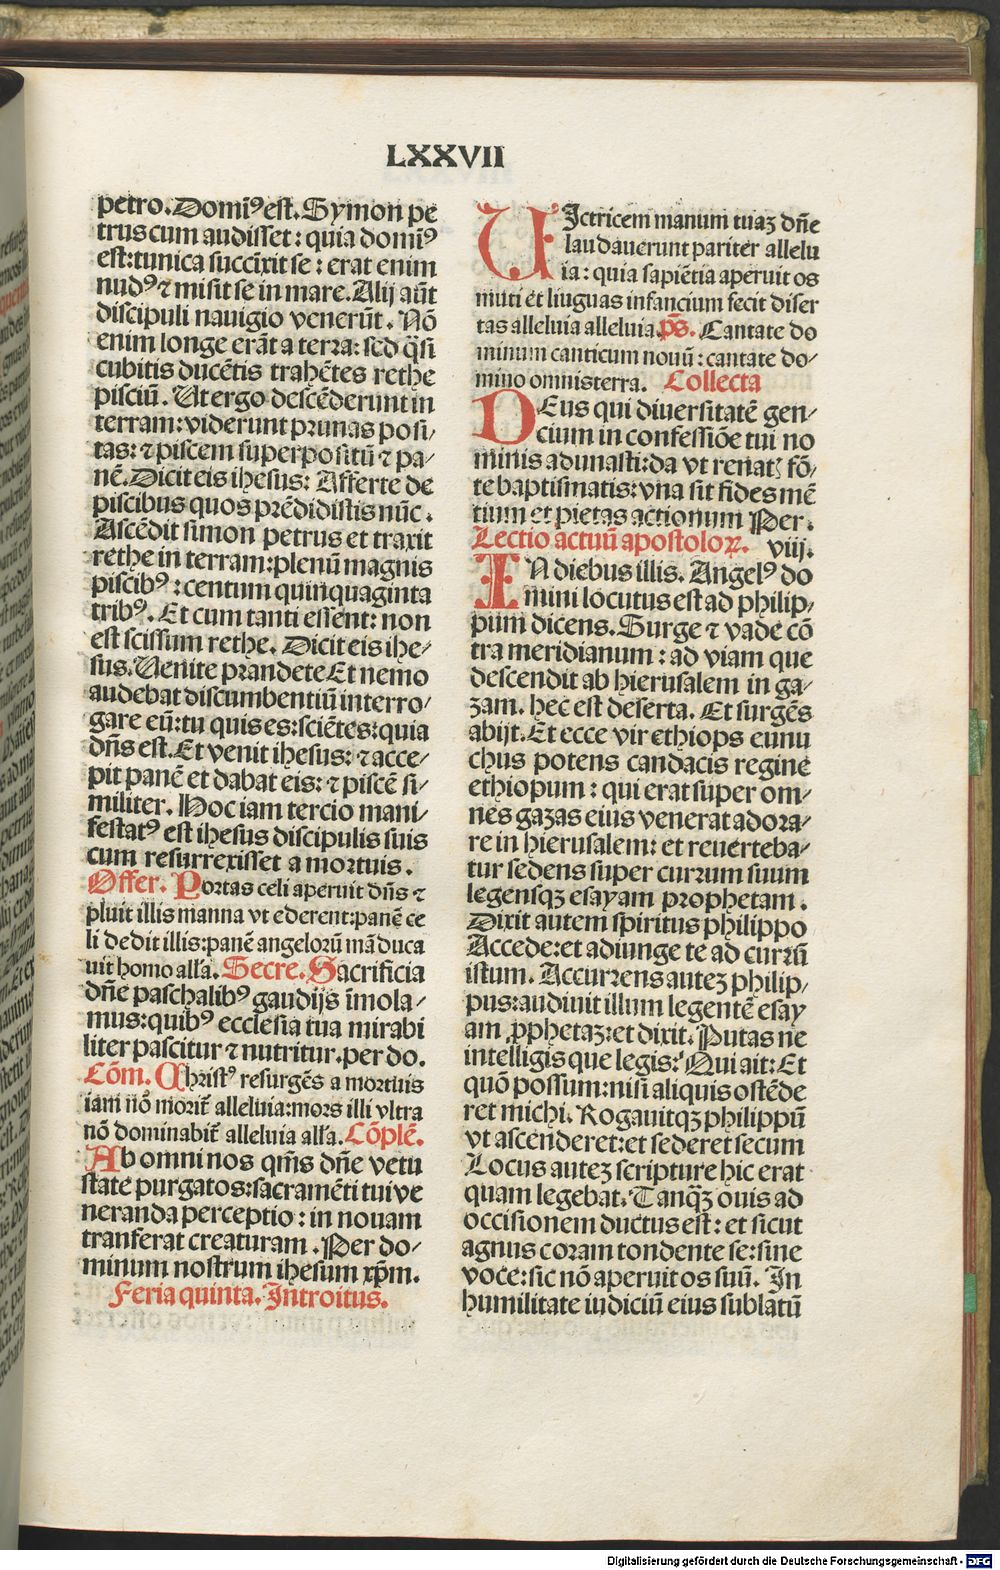 LXXVII
petro. Domiꝰ est. Symon pe
trus cum audisset: quia domiꝰ
est: tunica succīxit se: erat enim
nudꝰ ⁊ misit se in mare. Alij aūt
discipuli nauigio venerūt. Nō
enim longe erāt a terra: sed q̄si
cubitis ducētis trahētes rethe
pisciū. Ut ergo descēderunt in
terram: viderunt prunas posi/
tas: ⁊ piscem superpositū ⁊ pa/
nē. Dicit eis ihesus: Afferte de
piscibus quos prēdidistis nūc.
Ascēdit simon petrus et traxit
rethe in terram: plenū magnis
piscibꝰ: centum quinquaginta
tribꝰ. Et cum tanti essent: non
est scissum rethe. Dicit eis ihe/
sus. Uenite prandete Et nemo
audebat discumbentiū interro/
gare eū: tu quis es: sciētes: quia
dn̄s est. Et venit ihesus: ⁊ acce/
pit panē et dabat eis: ⁊ piscē si/
militer. Hoc iam tercio mani/
festatꝰ est ihesus discipulis suis
cum resurrexisset a mortuis.
Offer. Portas celi aperuit dn̄s ⁊
pluit illis manna vt ederent: panē ce
li dedit illis: panē angelorū māduca
uit homo all'a. Secre. Sacrificia
dn̄e paschalibꝰ gaudijs īmola/
mus: quibꝰ ecclesia tua mirabi
liter pascitur ⁊ nutritur. per do.
Cōm. Christꝰ resurgēs a mortuis
iam nō morit̄ alleluia: mors illi vltra
nō dominabit̄ alleluia all'a. Cōplē.
Ab omni nos qm̄s dn̄e vetu
state purgatos: sacramēti tui ve
neranda perceptio: in nouam
tranferat creaturam. Per do/
minum nostrum ihesum xp̄m.
Feria quinta. Introitus.
UJctricem manum tuaꝫ dn̄e
laudauerunt pariter allelu
ia: quia sapiētia aperuit os
muti et liuguas infancium fecit diser
tas alleluia alleluia. ps̄. Cantate do
minum canticum nouū: cantate do/
mino omnis terra. Collecta
DEus qui diuersitatē gen/
cium in confessiōe tui no
minis adunasti: da vt renatꝭ fō/
te baptismatis: vna sit fides mē
tium et pietas actionum Per.
Lectio actuū apostoloꝝ. viij.
IN diebus illis. Angelꝰ do
mini locutus est ad philip/
pum dicens. Surge ⁊ vade cō
tra meridianum: ad viam que
descendit ab hierusalem in ga/
zam. hec est deserta. Et surgēs
abijt. Et ecce vir ethiops eunu
chus potens candacis regine
ethiopum: qui erat super om/
nes gazas eius venerat adora/
re in hierusalem: et reuerteba/
tur sedens super currum suum
legensqꝫ esayam prophetam.
Dixit autem spiritus philippo
Accede: et adiunge te ad currū
istum. Accurrens auteꝫ philip/
pus: audiuit illum legentē esay
am ꝓphetaꝫ: et dixit. Putas ne
intelligis que legis: Qui ait: Et
quō possum: nisi aliquis ostēde
ret michi. Rogauitqꝫ philippū
vt ascenderet: et sederet secum
Locus auteꝫ scripture hic erat
quam legebat. Tanqꝫ̄ ouis ad
occisionem ductus est: et sicut
agnus coram tondente se: sine
voce: sic nō aperuit os suū. In
humilitate iudiciū eius sublatū
Digitalisierung gefördert durch die Deutsche Forschungsgemeinschaft - DFG